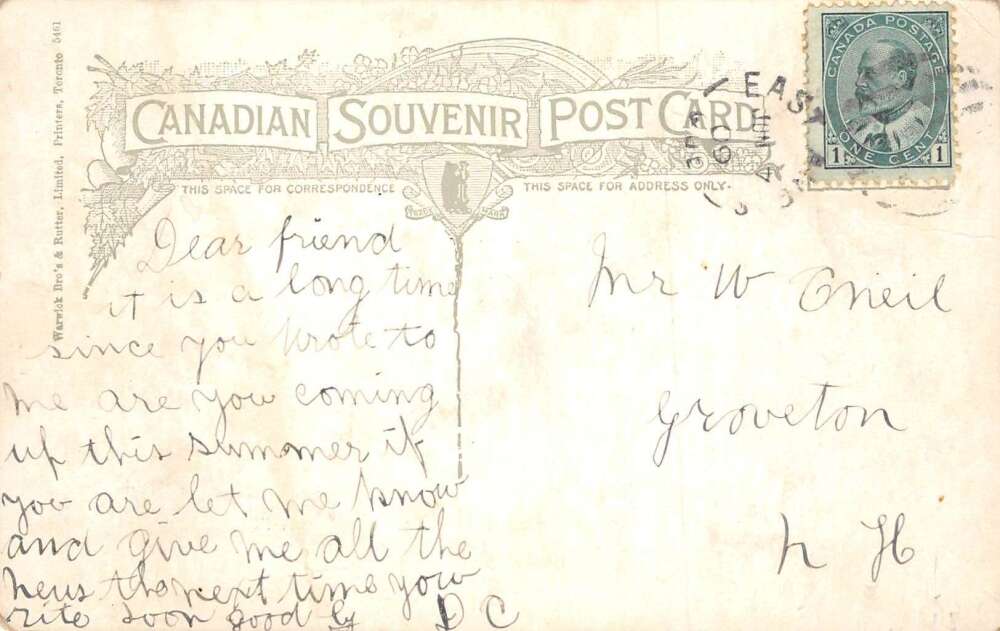 CANADIAN SOUVENIR POST CARD
THIS SPACE FOR CORRESPONDENCE
THIS SPACE FOR ADDRESS ONLY.
TRADE MARK
Warwick Bro's & Rutter, Limited, Printers, Toronto 5461
CANADA POSTAGE
1 ONE CENT 1
EAST
JUL 4
09
Dear friend
it is a long time
since you wrote to
me are you coming
up this summer if
you are let me know
and give me all the
news the next time you
rite soon good by D C
Mr W Oneil
Groveton
N H